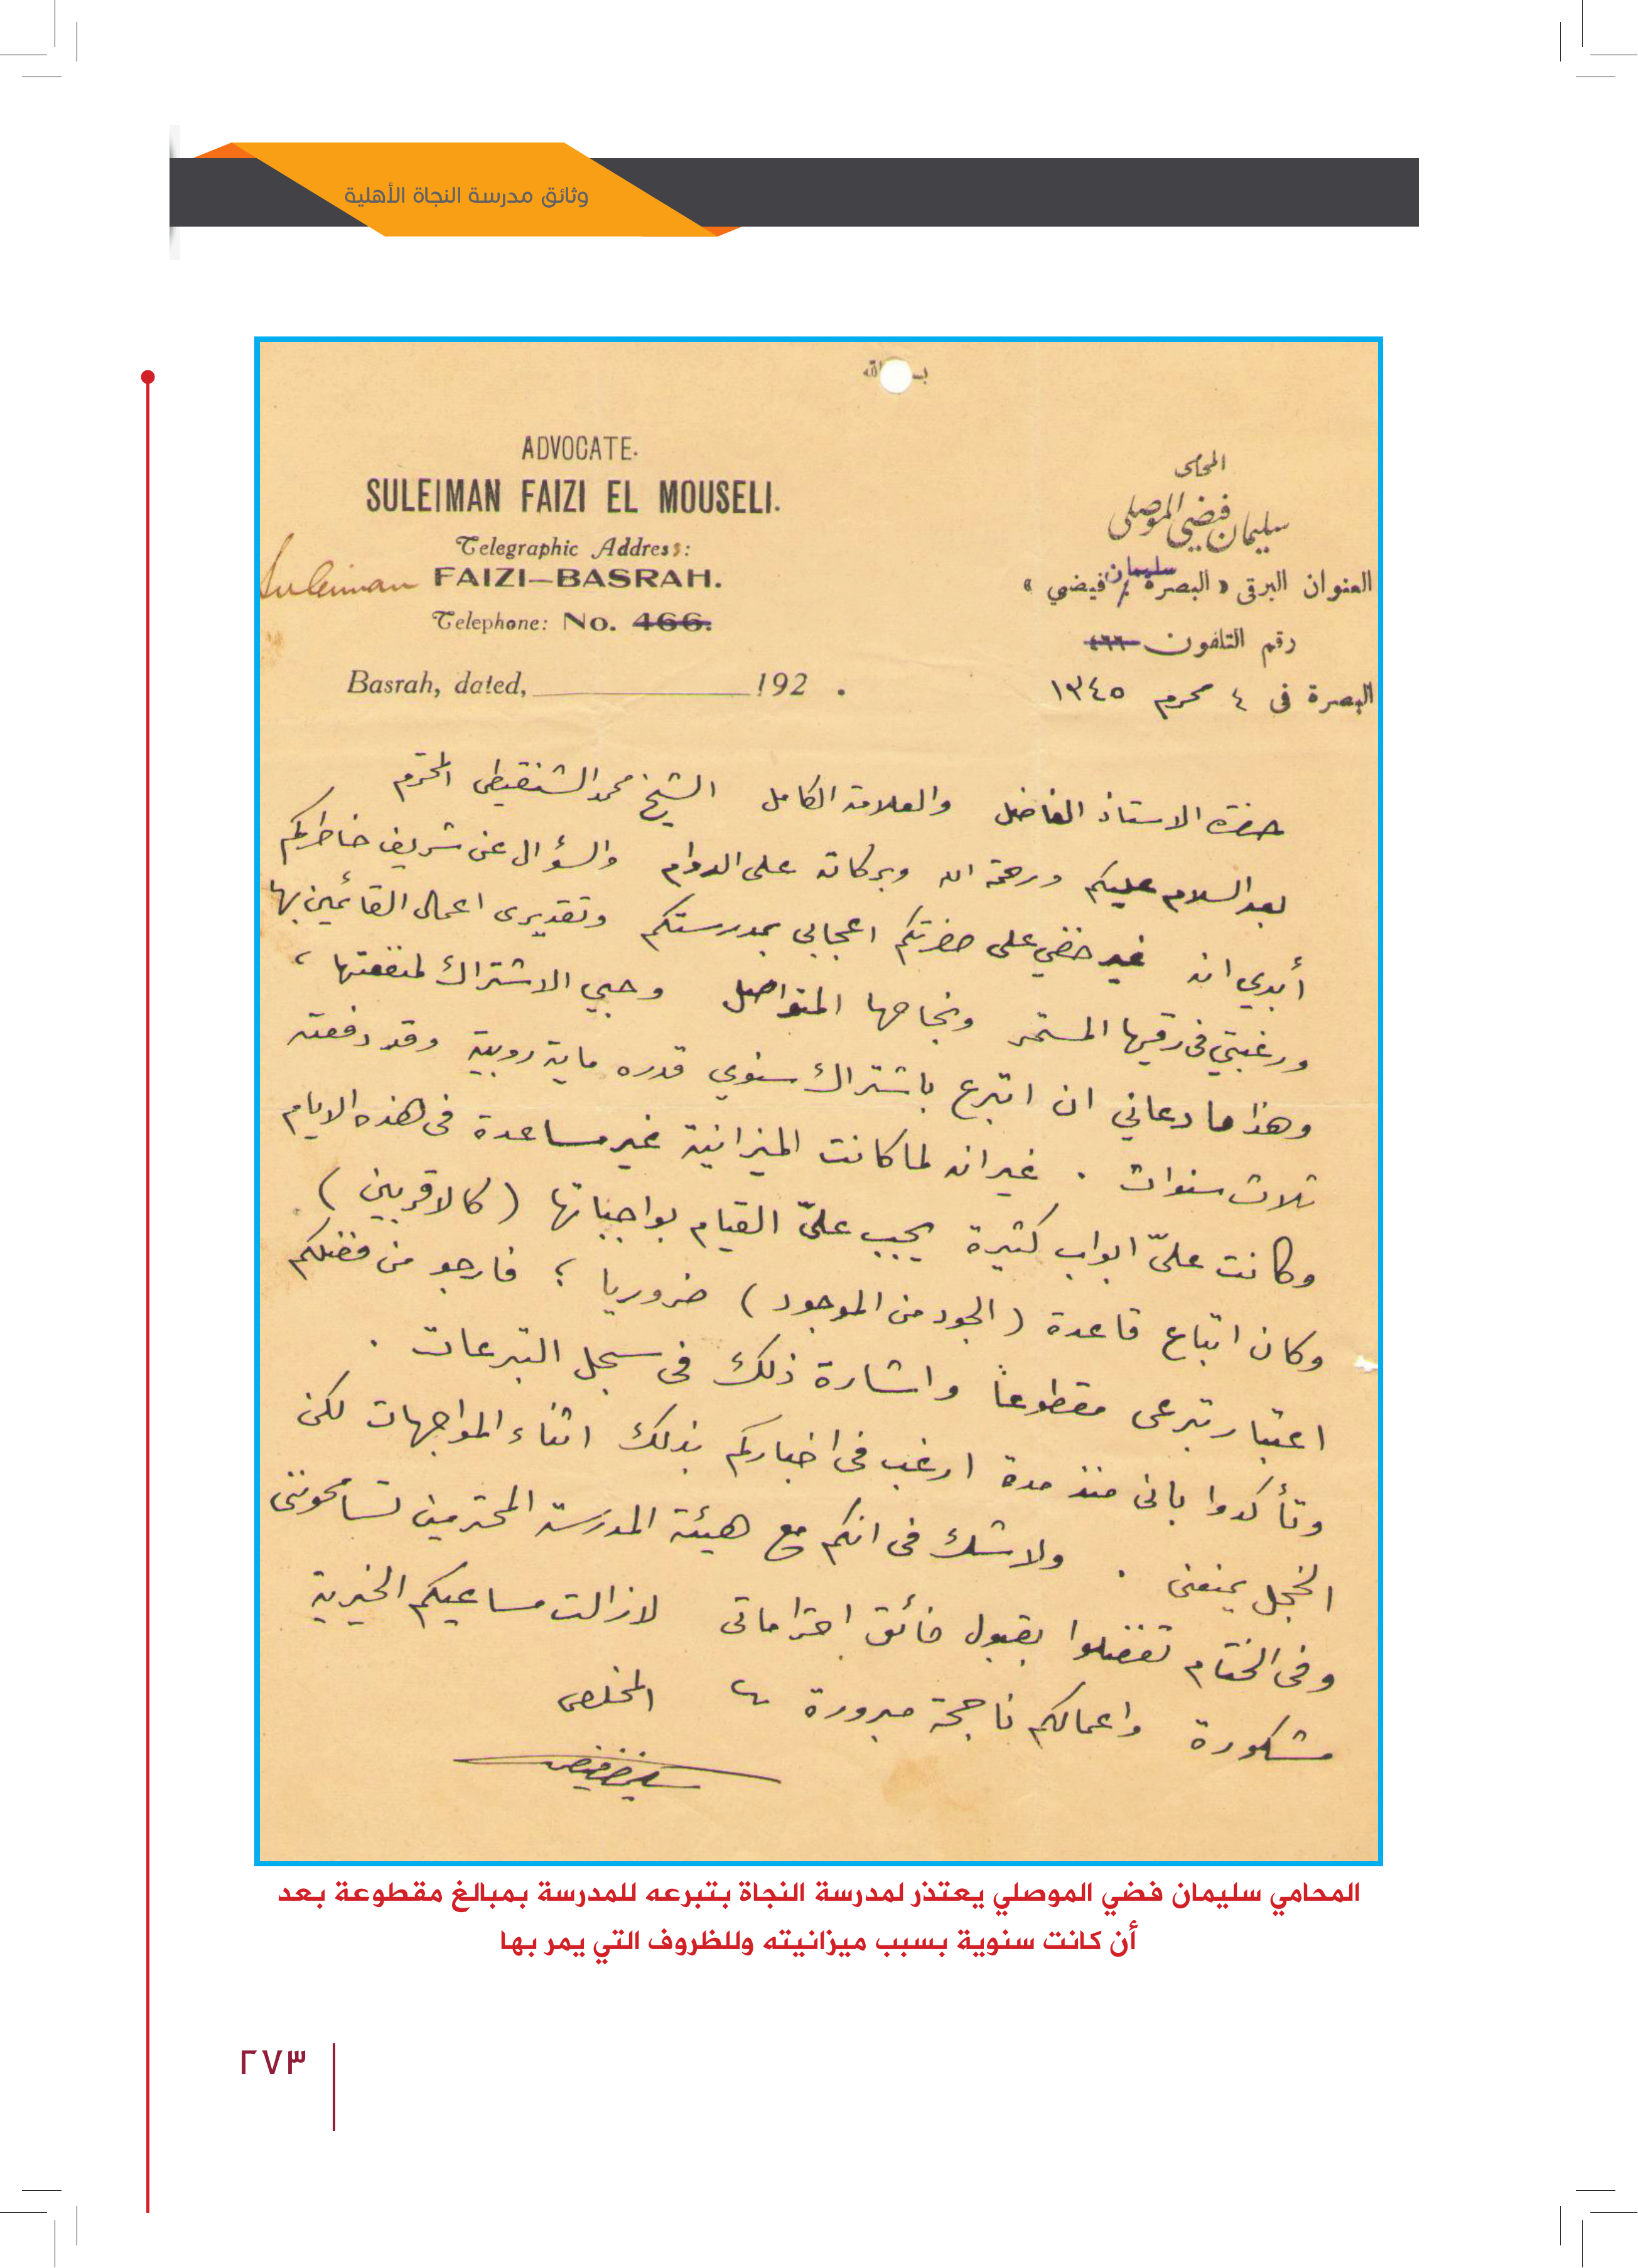 وثائق مدرسة النجاة الأهلية
ADVOCATE.
SULEIMAN FAIZI EL MOUSELI.
Telegraphic Address:
Suleiman FAIZI—BASRAH.
Telephone: No. 466.
Basrah, dated, 192 .
المحامى
سليمان فيضي الموصلى
العنوان البرقى « البصرة / سليمان فيضي »
رقم التلفون ٤٦٦
البصرة فى ٤ محرم ١٣٤٥
حضرة الاستاذ الفاضل والعلامة الكامل الشيخ محمد الشنقيطى المحترم
بعد السلام عليكم ورحمة الله وبركاته على الدوام والسؤال عن شريف خاطركم
أبدي انه غير خفي على حضرتكم اعجابي بمدرستكم وتقديرى اعمال القائمين بها
ورغبتي فى رقيها المستمر ونجاحها المتواصل وحبي الاشتراك لمنفعتها ،
وهذا ما دعاني ان اتبرع باشتراك سنوي قدره ماية روبية وقد دفعته
ثلاث سنوات . غير انه لما كانت الميزانية غير مساعدة فى هذه الايام
وكانت علىّ ابواب كثيرة يجب علىّ القيام بواجباتها ( كالاقربين )
وكان اتباع قاعدة ( الجود من الموجود ) ضروريا ؛ فارجو من فضلكم
اعتبار تبرعى مقطوعاً واشارة ذلك فى سجل التبرعات .
وتأكدوا بانى منذ مدة ارغب فى اخباركم بذلك اثناء المواجهات لكن
الخجل يمنعنى . ولا شك فى انكم مع هيئة المدرسة المحترمين تسامحوننى
وفى الختام تفضلوا بقبول فائق احتراماتى لازالت مساعيكم الخيرية
مشكورة واعمالكم ناجحة مبرورة المخلص
سليمان فيضي
المحامي سليمان فضي الموصلي يعتذر لمدرسة النجاة بتبرعه للمدرسة بمبالغ مقطوعة بعد
أن كانت سنوية بسبب ميزانيته وللظروف التي يمر بها
٢٧٣